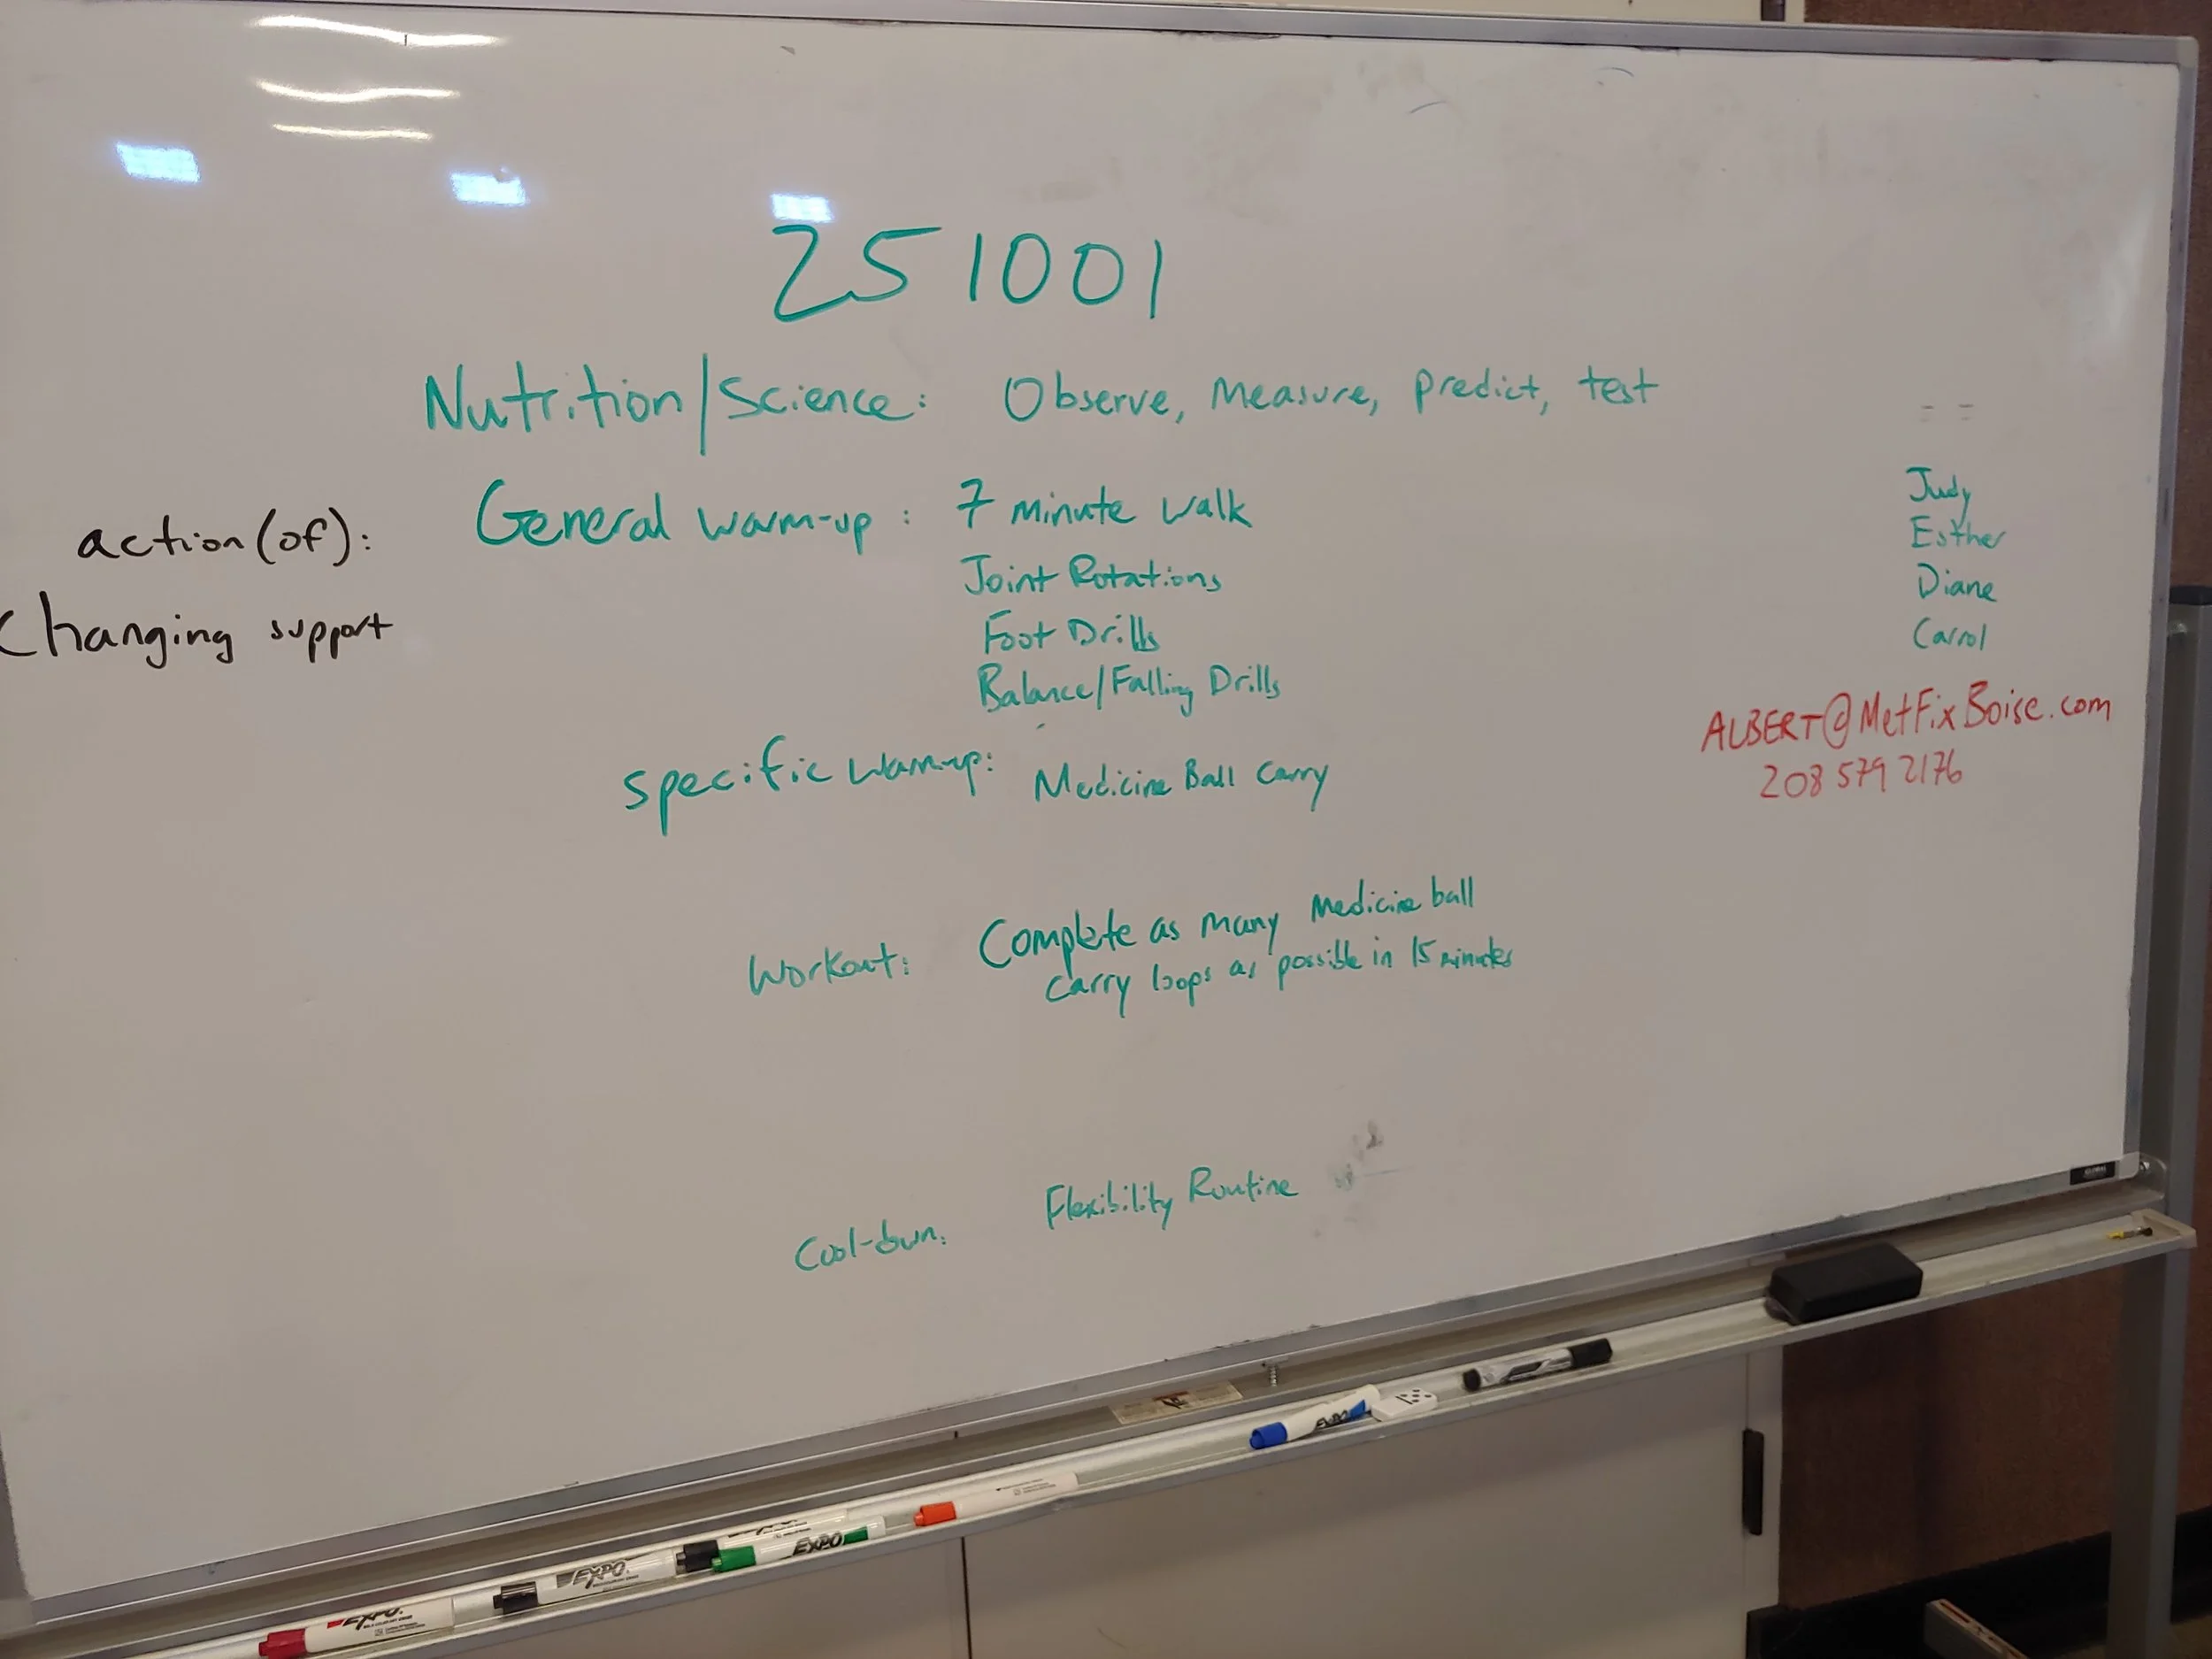 251001
Nutrition/Science: Observe, Measure, predict, test
action(of):
Changing support
General warm-up: 7 minute walk
Joint Rotations
Foot Drills
Balance/Falling Drills
Judy
Esther
Diane
Carrol
ALBERT@MetFixBoise.com
208 579 2176
specific warm-up: Medicine Ball Carry
Workout: Complete as many Medicine ball
carry loops as possible in 15 minutes
Cool-down: Flexibility Routine
GLOBAL
EXPO
EXPO
EXPO
EXPO